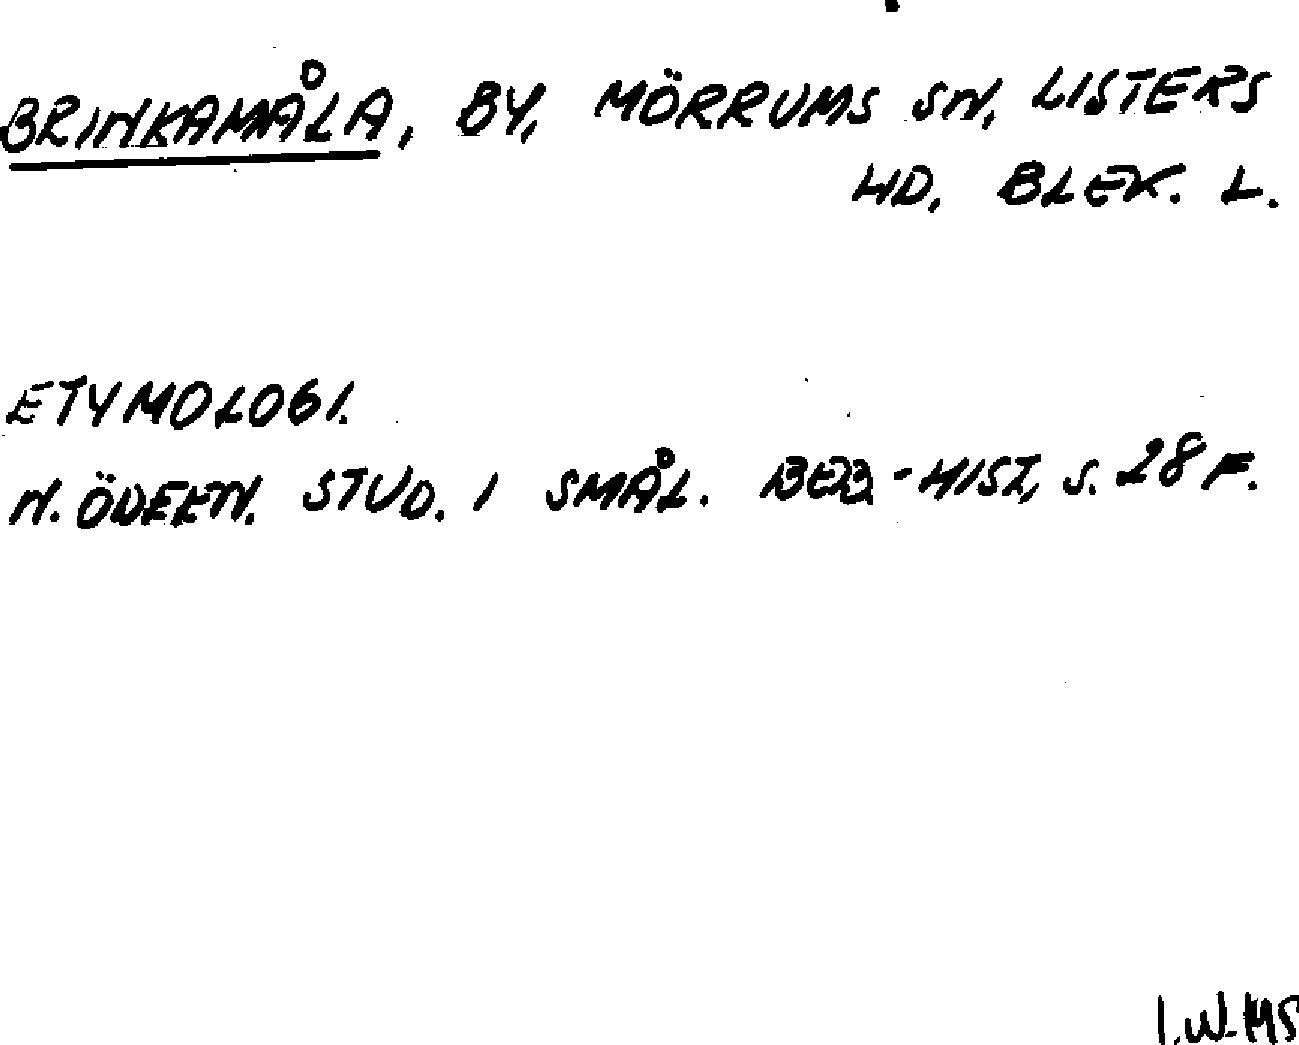 BRINKAMÅLA, BY, MÖRRUMS SN, LISTERS
HD, BLEK. L.
ETYMOLOGI.
N. ÖDEEN. STUD. I SMÅL. BEB.-HIST, S. 28 F.
I.W-MS